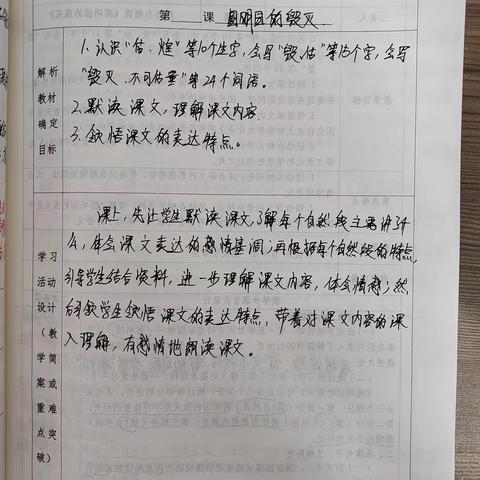 第 课 圆明园的毁灭
解析
教材
确定
目标
1.认识“估、煌”等10个生字,会写“毁、估”等15个字,会写
“毁灭、不可估量”等24个词语。
2.默读课文,理解课文内容
3.领悟课文的表达特点。
学习
活动
设计
(教
学简
案或
重难
点突
破)
课上,先让学生默读课文,了解每个自然段主要讲了什
么,体会课文表达的感情基调;再根据每个自然段的特点,
引导学生结合资料,进一步理解课文内容,体会情感;然
后引领学生领悟课文的表达特点,带着对课文内容的深
入理解,有感情地朗读课文。